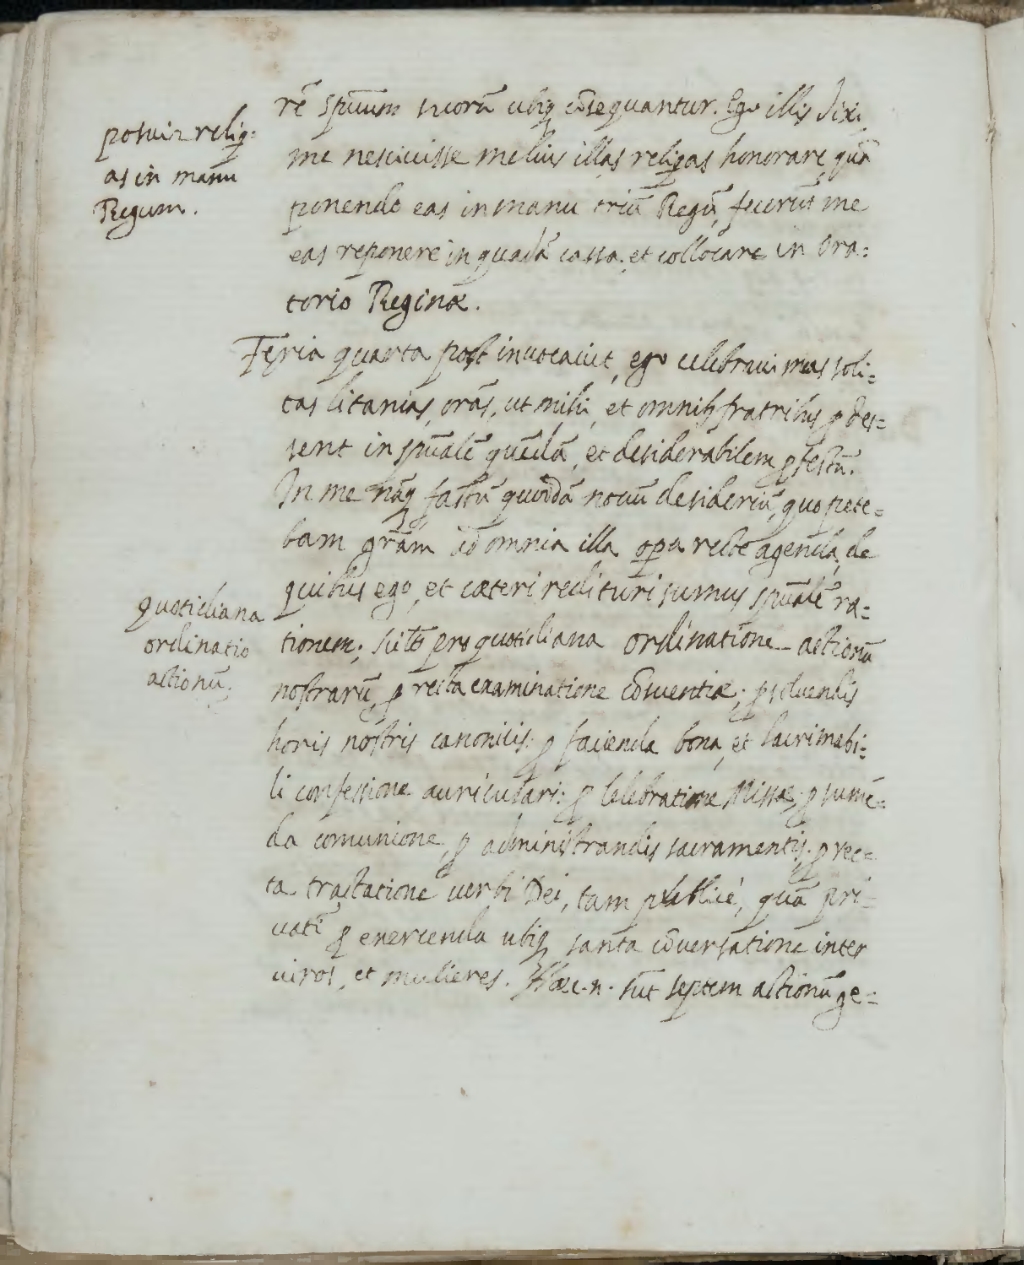 posui relig̃:
as in manu
Regum.
rẽ spũum suorũ ubiq cõsequantur. Ego illis dixi
me nescivisse melius illas religas honorare, quã
ponendo eas in manu triũ Regũ, fecerũt me
eas reponere in quadã cassa, et collocare in Ora:
torio Reginæ.
Feria quarta post invocavit, ego celebravi meas soli:
tas litanias, orãs, ut mihi, et omnib; fratribus ꝑdes:
sent in spũalẽ quẽdã, et desiderabilem ꝑfectũ.
In me nãq factũ quoddã novũ desideriũ, quo pete:
bam grãm ad omnia illa opera recte agenda, de
quibus ego, et cæteri reddituri sumus spũalẽ ra:
quotidiana
ordinatio
actionũ.
tionem; scilt̃ pro quotidiana ordinatione actionũ
nostrarũ, ꝑ recta examinatione cõscientiæ; ꝑsolvendis
horis nostris canonicis: ꝑ facienda bona, et lacrimabi:
li confessione auriculari: ꝑ celebratione Missæ, ꝑ sumẽ:
da comunione, ꝑ administrandis sacramentis, ꝑ rec:
ta tractatione verbi Dei, tam publicé, quã pri:
vatĩ ꝑ exercenda ubiq sancta cõversatione inter
viros, et mulieres. Hæc.n. sũt septem actionũ ge: